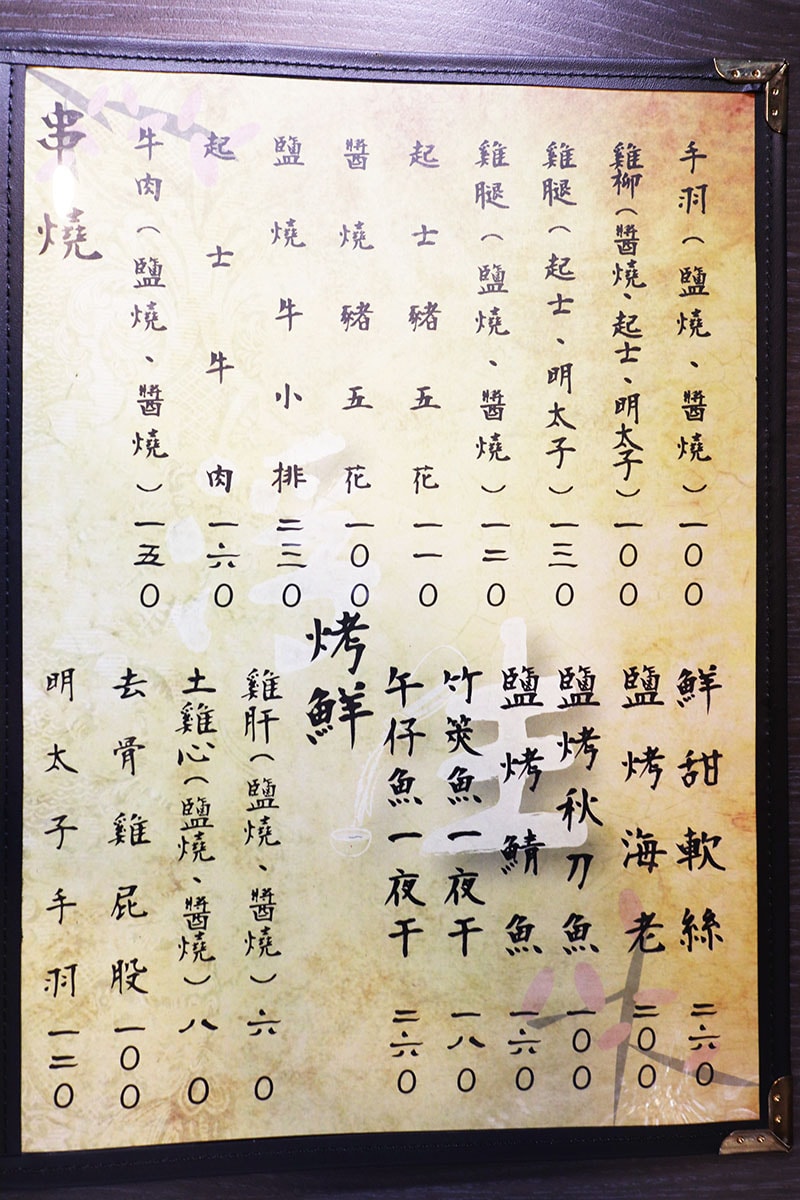 串燒
牛肉(鹽燒、醬燒)一五0
起士牛肉一六0
鹽燒牛小排二三0
醬燒豬五花一00
起士豬五花一一0
雞腿(鹽燒、醬燒)一二0
雞腿(起士、明太子)一三0
雞柳(醬燒、起士、明太子)一00
手羽(鹽燒、醬燒)一00
明太子手羽一二0
去骨雞屁股一00
土雞心(鹽燒、醬燒)八0
雞肝(鹽燒、醬燒)六0
烤鮮
午仔魚一夜干二六0
竹筴魚一夜干一八0
鹽烤鯖魚一六0
鹽烤秋刀魚一00
鹽烤海老二00
鮮甜軟絲二六0
生